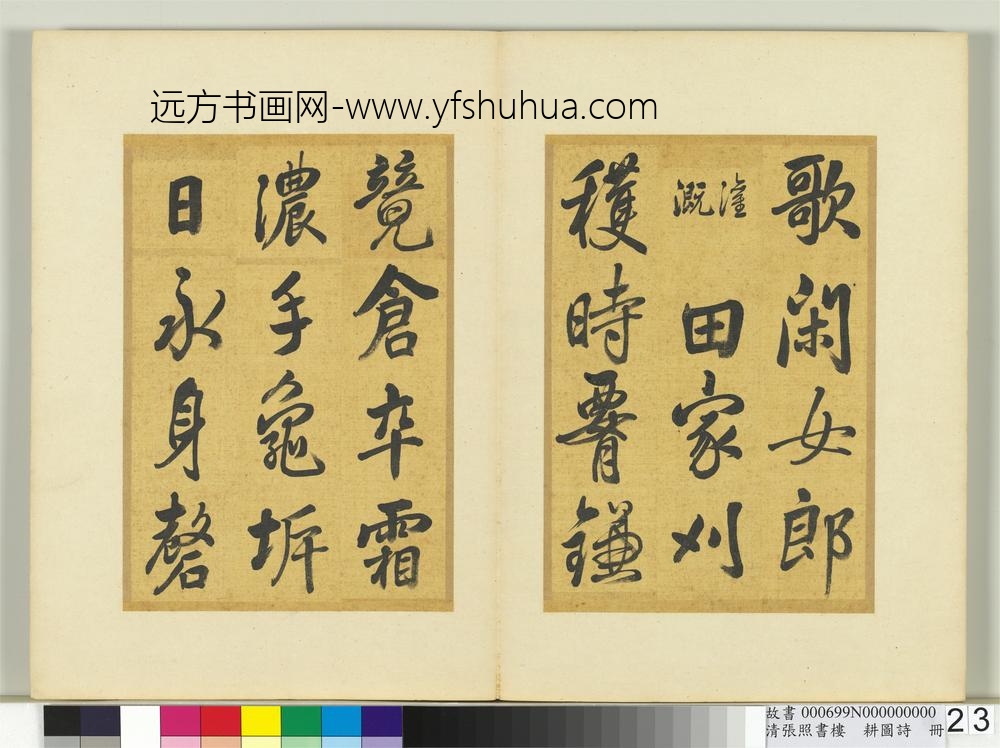 远方书画网-www.yfshuhua.com
歌閑女郎
灌溉
田家刈
穫時䐣鐮
競倉卒霜
濃手龜坼
日永身磬
故書 000699N000000000
清張照書樓 耕圖詩 冊
23